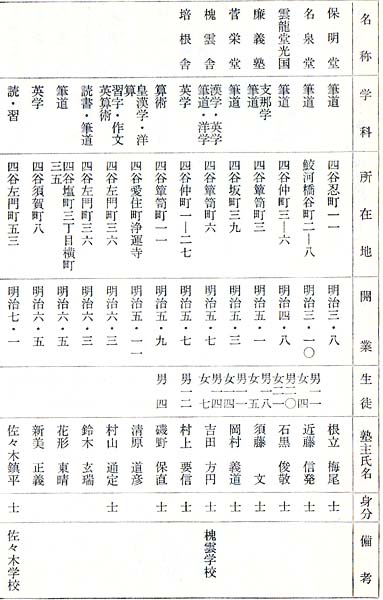 名称 学科 所在地 開業 生徒 塾主氏名 身分 備考
保明堂 筆道 四谷忍町一一 明治三・八 根立 梅尾 士
名泉堂 筆道 鮫河橋谷町二―八 明治三・一〇 近藤 信発 士
雲龍堂光国 筆道 四谷仲町三―六 明治四・八 石黒 俊敬 士
廉義塾 支那学 筆道 四谷簞笥町三 明治五・一 須藤 文 士
菅栄堂 筆道 四谷坂町三九 明治五・三 岡村 義道 士
槐雲舎 漢学・英学 筆道・洋学 四谷簞笥町六 明治五・七 吉田 方円 士 槐雲学校
培根舎 英学 四谷仲町一―二七 明治五・七 男一二 村上 要信 士
算術 四谷簞笥町一一 明治五・九 男四 磯野 保直 士
皇漢学・洋算 四谷愛住町浄運寺 明治五・一一 清原 道彦
習字・作文 英算術 四谷左門町三六 明治六・三 村山 通定 士
読書・筆道 四谷左門町三六 明治六・三 鈴木 玄瑞
筆道 四谷塩町三丁目横町三五 明治六・五 花形 東晴
英学 四谷須賀町八 明治六・五 新美 正義
読・習 四谷左門町五三 明治七・一 佐々木鎮平 士 佐々木学校